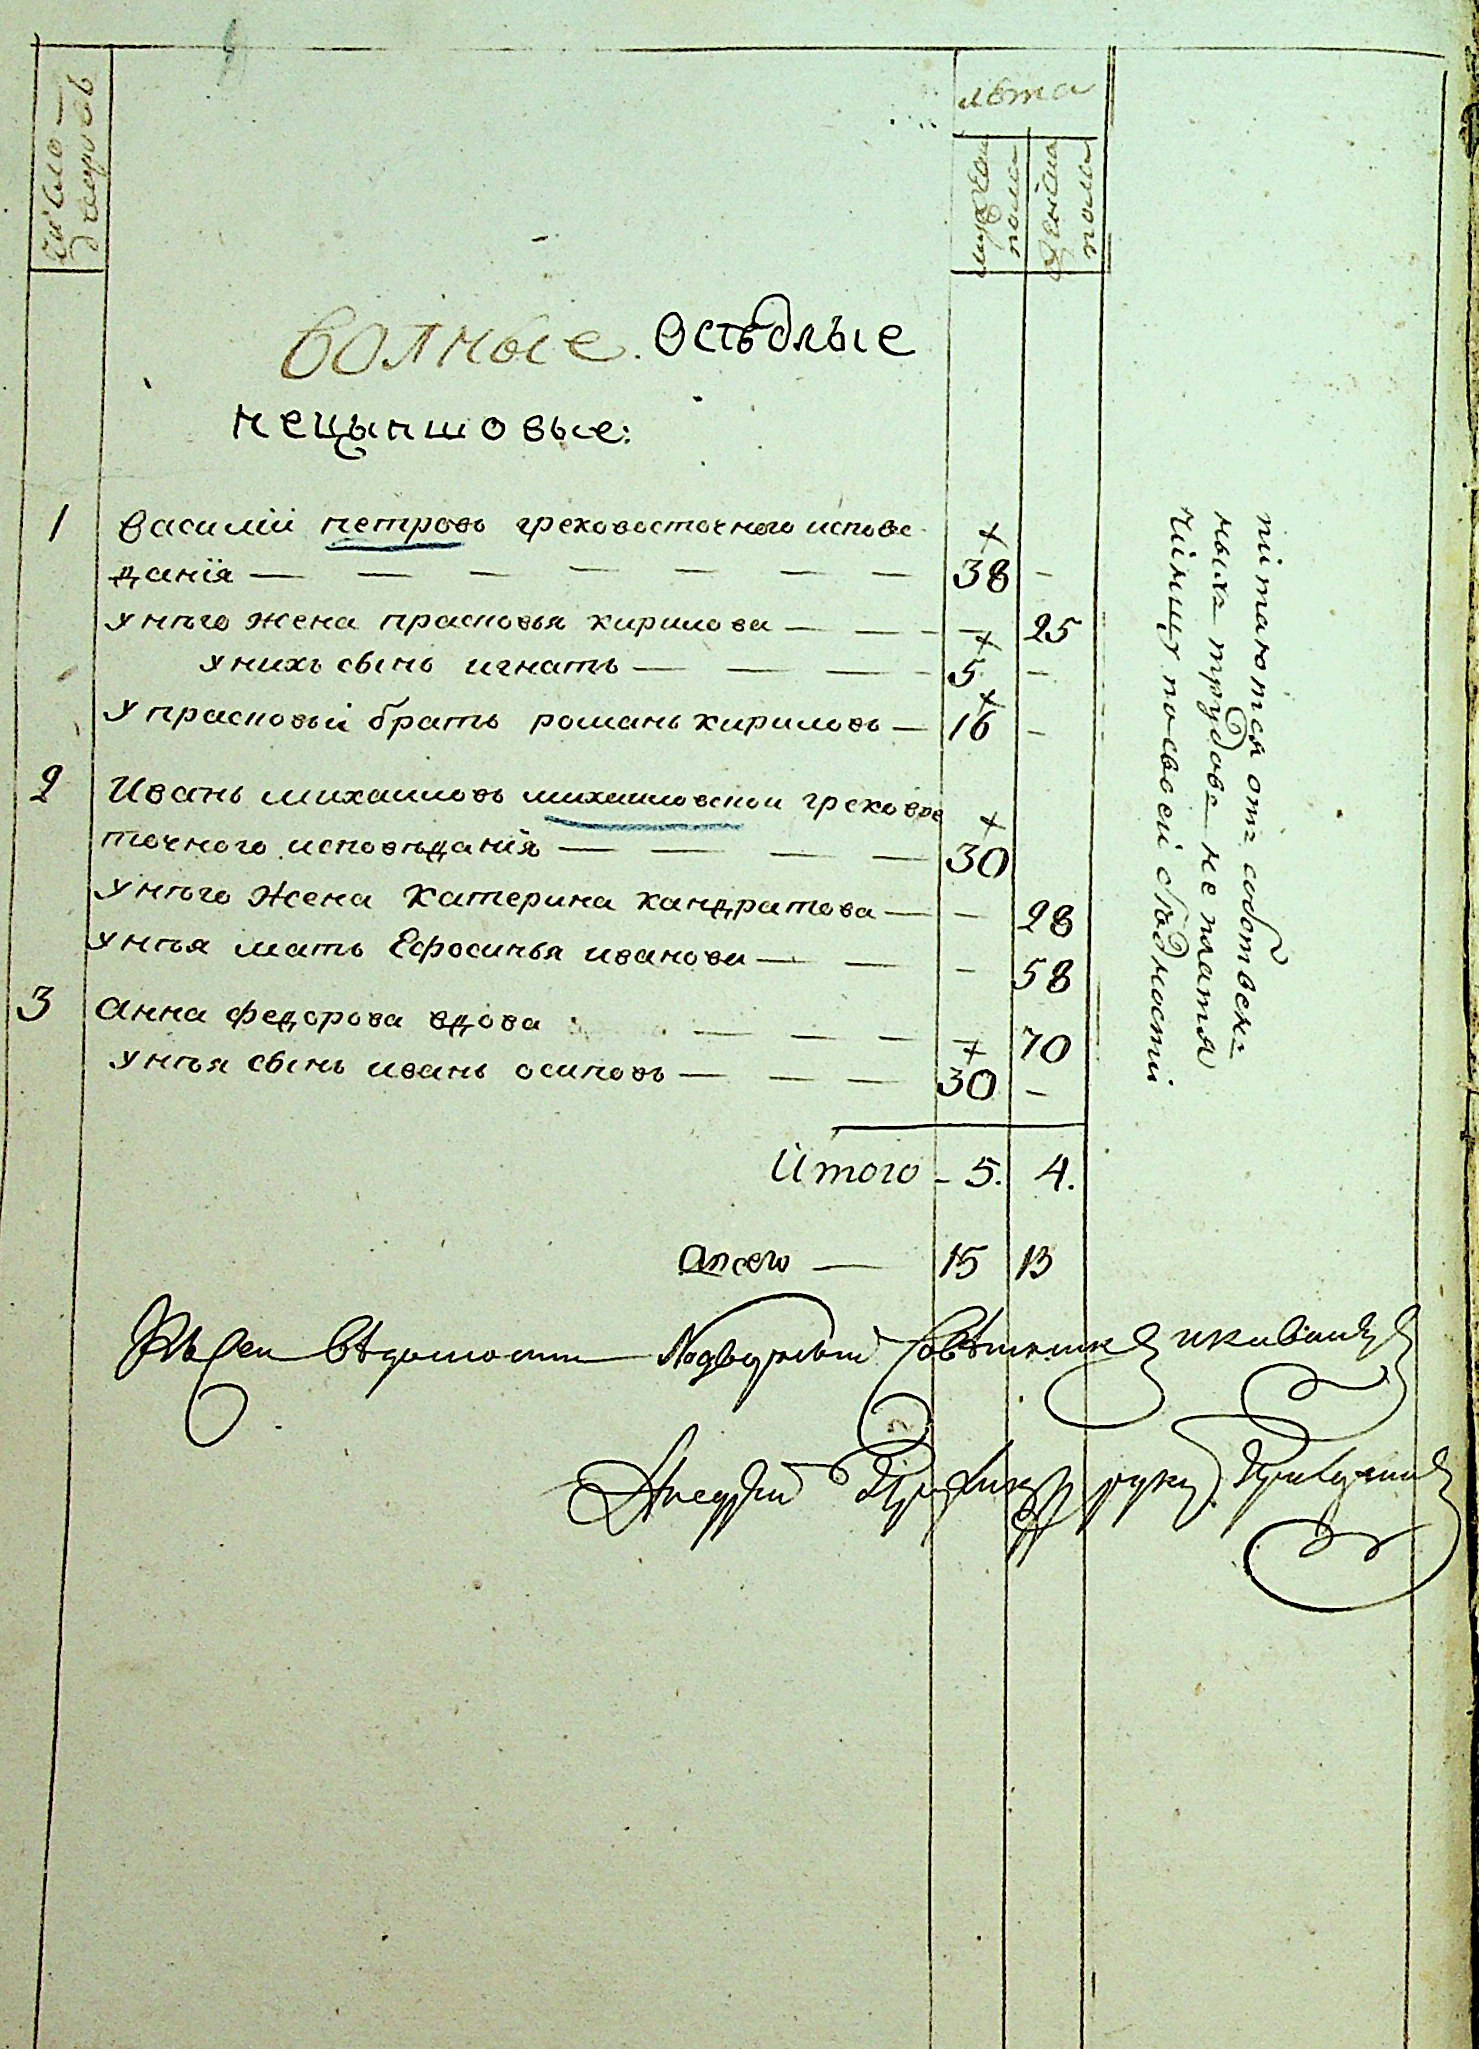 Число дворовъ
лѣта
мужеска пола
женска пола
вольные. осѣдлые
нецыншовые:
1 Василій петровъ грековосточного испове
данїя — — — — — — — 38 —
У нѣго жена прасковья кирилова — — — — 25
У нихъ сынъ игнатъ — — — 5 —
У прасковьи братъ романъ кириловъ — 16 —
2 Иванъ михаиловъ михаиловской грековос
точного исповѣданїя — — — — 30
У нѣго жена катерина кандратова — — 28
У нѣя мать Ефросинья иванова — — — 58
3 анна федорова вдова — — — — 70
У нѣя сынъ иванъ осиповъ — — — 30 —
Итого — 5. 4.
а всего — 15 13
питаются отъ собствен:
ныхъ трудовъ не платя
чиншу по своей бѣдности
Къ сей вѣдомости Надворный Совѣтникъ и кавалеръ
Андрей руку приложилъ